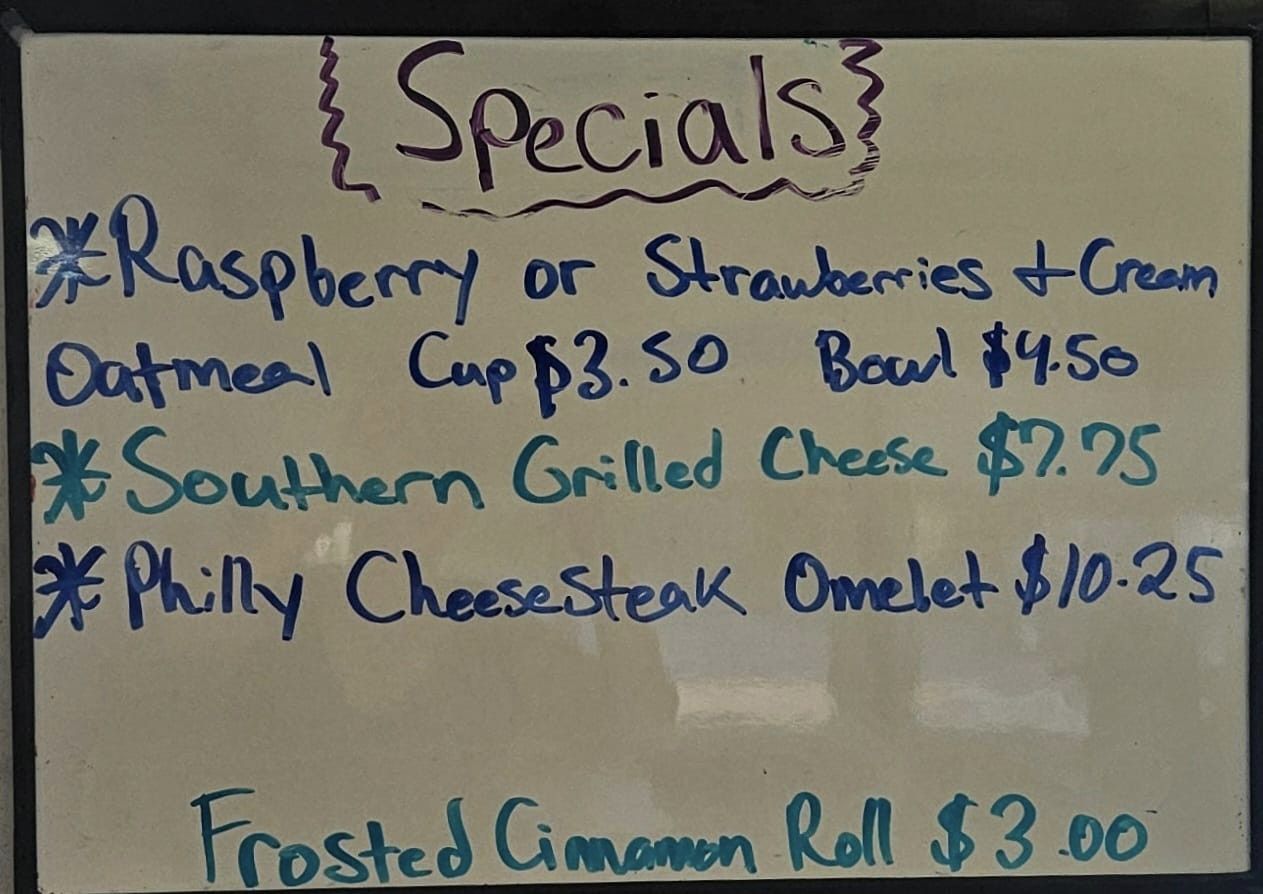 Specials
*Raspberry or Strawberries + Cream
Oatmeal Cup $3.50 Bowl $4.50
*Southern Grilled Cheese $7.75
*Philly CheeseSteak Omelet $10.25
Frosted Cinnamon Roll $3.00